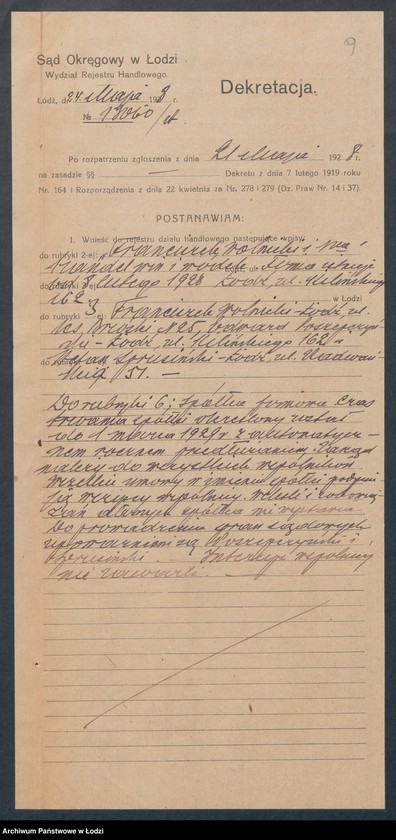 9
Sąd Okręgowy w Łodzi
Wydział Rejestru Handlowego.
Dekretacja.
Łódź, d. 24 maja 1928 r.
№
Po rozpatrzeniu zgłoszenia z dnia 21 maja 1928 r.
na zasadzie §§ — Dekretu z dnia 7 lutego 1919 roku
Nr. 164 i Rozporządzenia z dnia 22 kwietnia za Nr. 278 i 279 (Dz. Praw Nr. 14 i 37).
POSTANAWIAM:
I. Wnieść do rejestru działu handlowego następujące wpisy:
do rubryki 2-ej: Franciszek i
handel win i wódek. Firma istnieje
od 8 lutego 1928 Łódź, ul. Kilińskiego
162 w Łodzi
do rubryki 3 ej: Franciszek Łódź, ul.
125, Edward
Łódź, ul. Kilińskiego 162 i
Stefan Łódź, ul.
51. —
Do rubryki 6: Spółka firmowa Czas
trwania spółki określony został
do 1 marca 1929 r z automatycz-
nem rocznem przedłużaniem. Zarząd
należy do wszystkich wspólników
Wszelkie umowy w imieniu spółki podpisu-
ją wszyscy wspólnicy. Weksli i zobowią-
zań spółka nie wystawia
Do prowadzenia spraw sądowych
upoważnieni są i
Intercyz wspólnicy
nie zawarli. —
Archiwum Państwowe w Łodzi